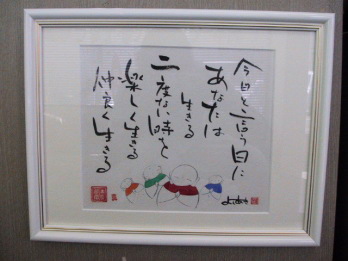 今日と言う日に
あなたは
生きる
二度ない時を
楽しく生きる
仲良く生きる